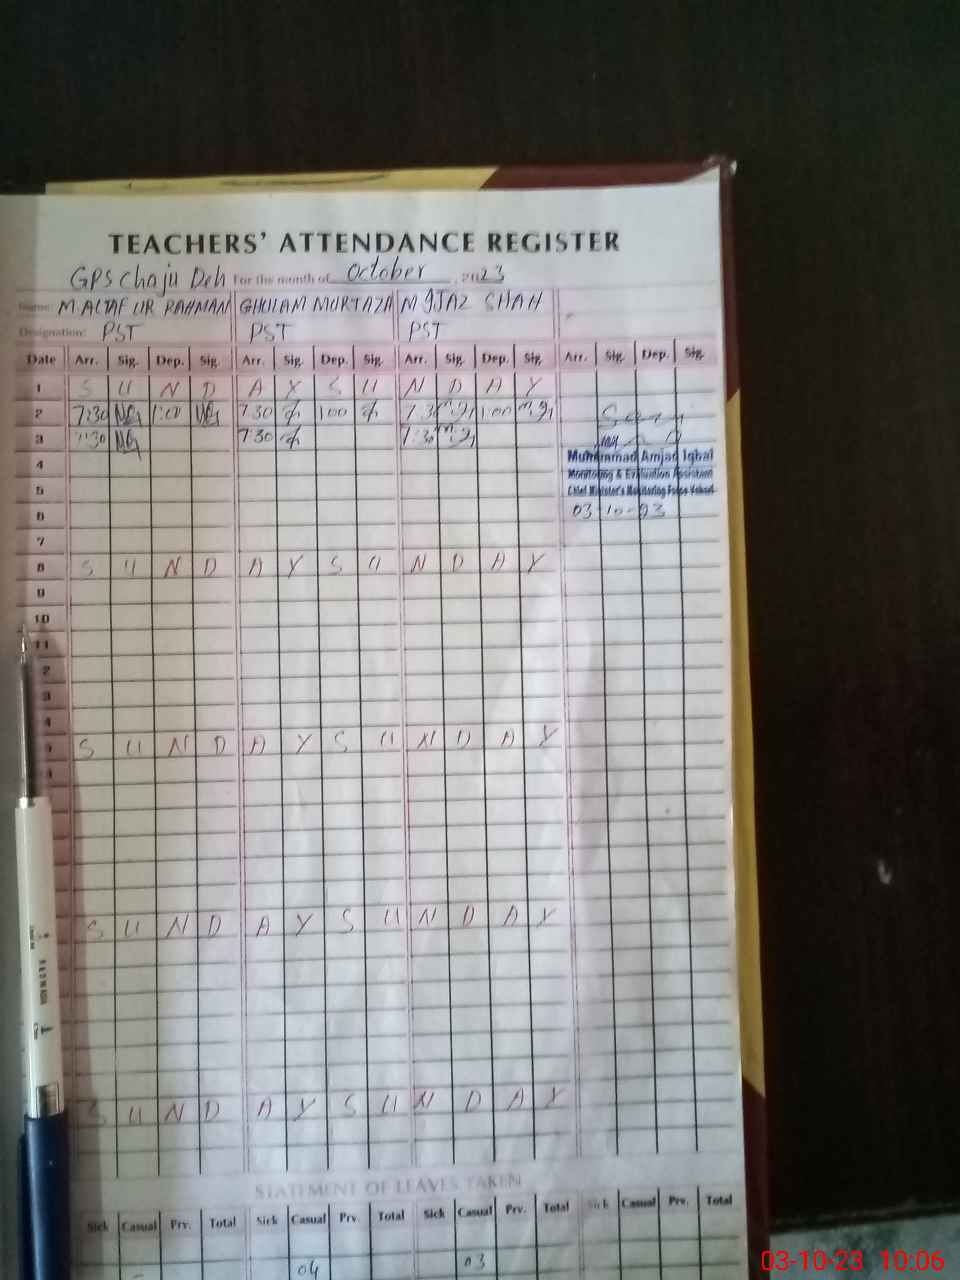 TEACHERS' ATTENDANCE REGISTER
GPS Chaju Deh For the month of October, 2023
Name: M. ALTAF UR RAHMAN GHULAM MURTAZA M IJAZ SHAH
Designation: PST PST PST
Date Arr. Sig. Dep. Sig. Arr. Sig. Dep. Sig. Arr. Sig. Dep. Sig. Arr. Sig. Dep. Sig.
1 S U N D A Y S U N D A Y
2 7:30 1:00 7:30 1:00 7:30 1:00
3 7:30 7:30 7:30
Muhammad Amjad Iqbal
4
Monitoring & Evaluation Assistant
5 Chief Minister's Monitoring Force Vehari
6 03-10-23
7
8 S U N D A Y S U N D A Y
9
10
11
2
3
4
S U N D A Y S U N D A Y
S U N D A Y S U N D A Y
S U N D A Y S U N D A Y
STATEMENT OF LEAVES TAKEN
Sick Casual Prv. Total Sick Casual Prv. Total Sick Casual Prv. Total Sick Casual Prv. Total
04 03
03-10-23 10:06